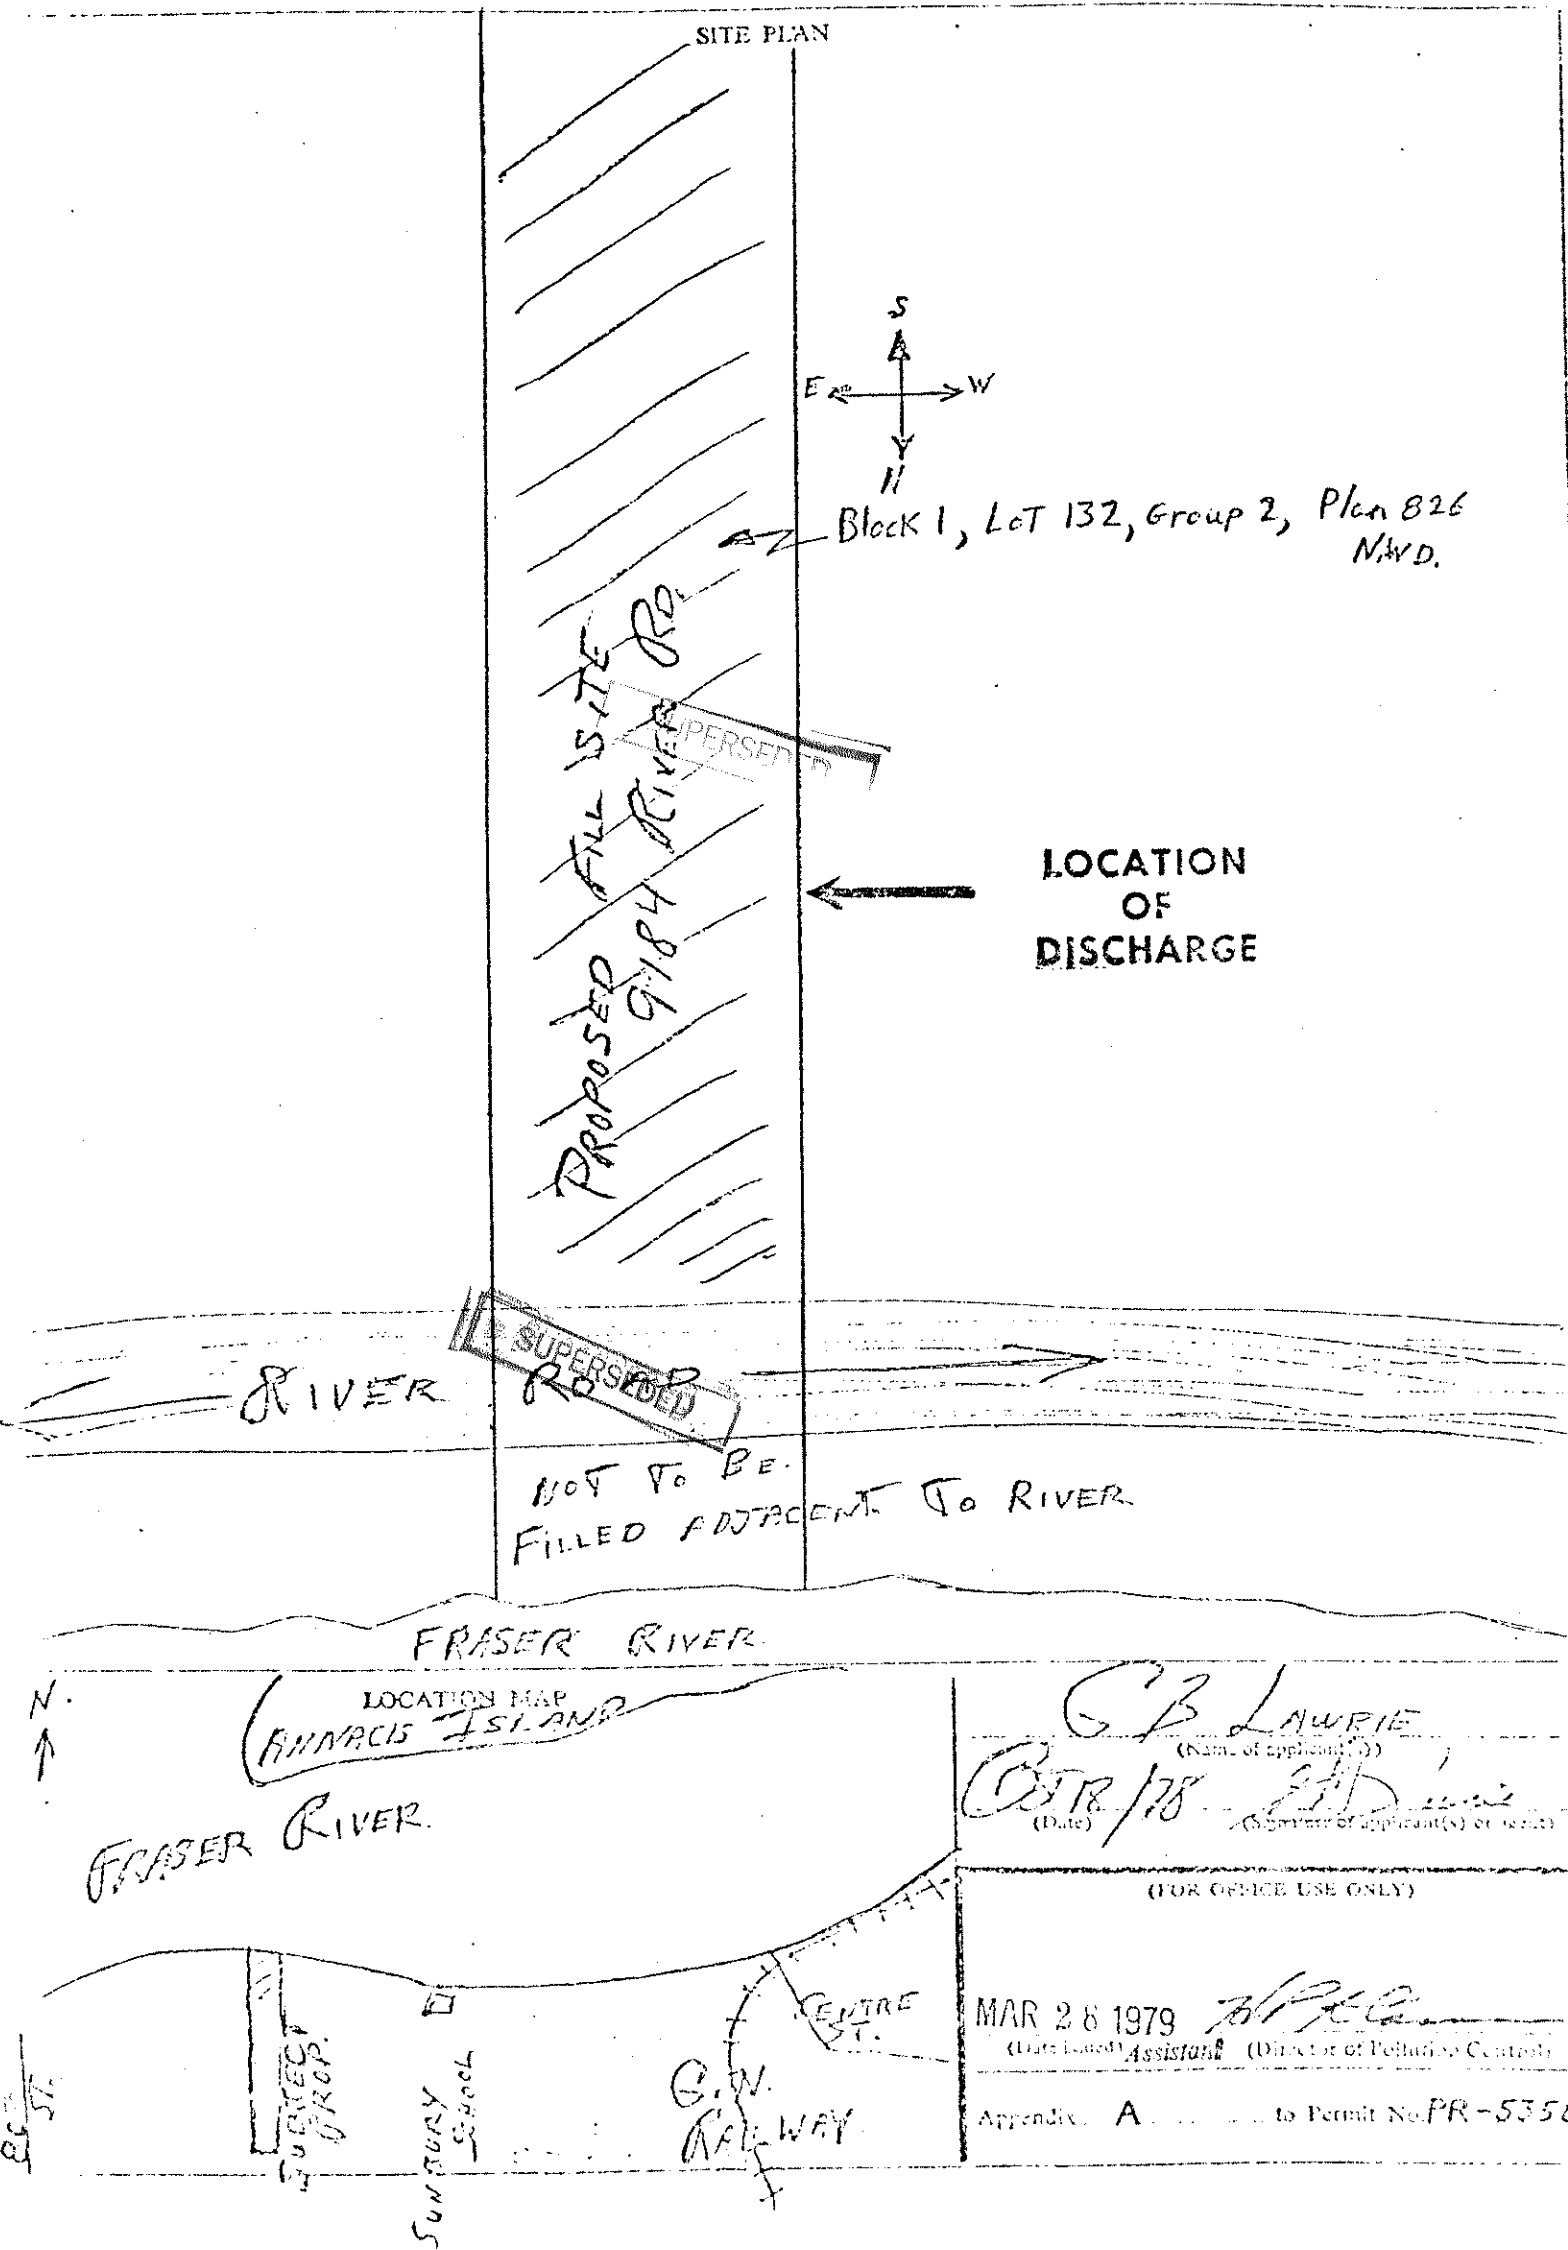 SITE PLAN
S
E W
N
Block 1, LOT 132, Group 2, Plan 826
N.W.D.
PROPOSED FILL SITE
9184 RIVER RD.
SUPERSEDED
LOCATION
OF
DISCHARGE
SUPERSEDED
RIVER ROAD
NOT TO BE.
FILLED ADJACENT TO RIVER
FRASER RIVER
N.
LOCATION MAP
ANNACIS ISLAND
FRASER RIVER.
ST.
SUBJECT
PROP.
SUNBURY
SCHOOL
G.N.
RAILWAY
CENTRE
ST.
G B LAWRIE
(Name of applicant(s))
OCT 18/78
(Date) (Signature of applicant(s) or agent)
(FOR OFFICE USE ONLY)
MAR 28 1979
(Date issued) Assistant (Director of Pollution Control)
Appendix A to Permit No. PR-535